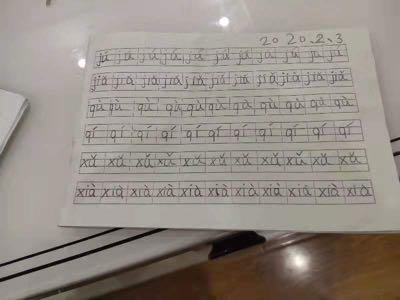 2020.2.3
jú jú jú jú jú jú jú jú jú jú jú
jiā jiā jiā jiā jiā jiā jiā jiā jiā jiā jiā
qù qù qù qù qù qù qù qù qù qù qù
qí qí qí qí qí qí qí qí qí qí qí
xǔ xǔ xǔ xǔ xǔ xǔ xǔ xǔ xǔ xǔ xǔ
xià xià xià xià xià xià xià xià xià xià xià